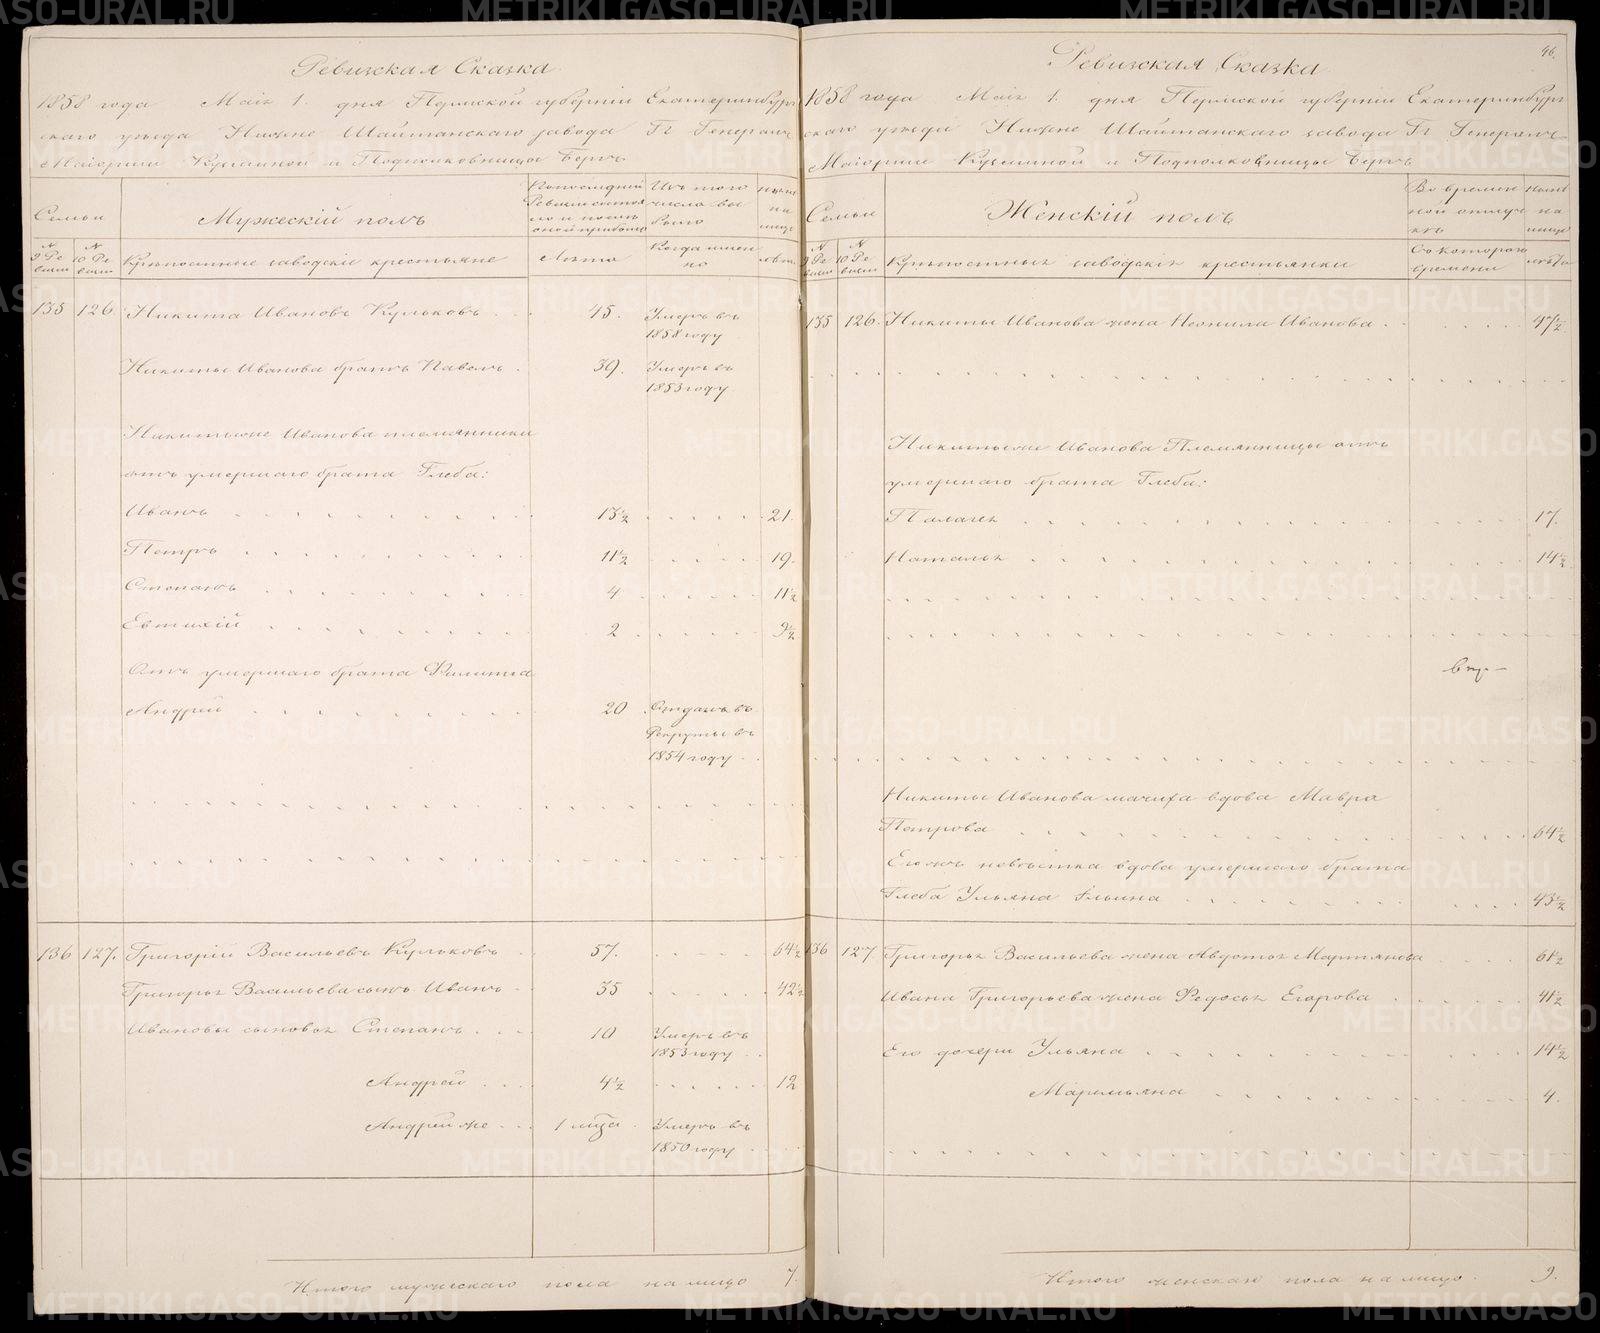 Ревижская Сказка
1858 года Маія 1. дня Пермской губерніи Екатеринбург
скаго уезда Нижне Шайтанскаго завода Гг Генералъ
Маіорши Кузьминой и Подполковницы Бергъ
Семьи
Мужескій полъ
Изъ того числа выбыло
№ 9 Ревизіи
№ 10 Ревизіи
Крепостные заводскіе крестьяне
Лета
Когда именно
лета
135 126 Никита Ивановъ Кульковъ 45. Умеръ въ
1858 году
Никиты Иванова братъ Павелъ 39. Умеръ въ
1853 году
Никитыже Иванова племянники
отъ умершаго брата Глеба:
Иванъ 13½ 21.
Петръ 11½ 19.
Степанъ 4 11½
Евтихій 2 9½
Отъ умершаго брата Филиппа
Андрей 20 Отданъ въ
Рекруты въ
1854 году
136 127. Григорій Васильевъ Кульковъ 57. 64½
Григорья Васильева сынъ Иванъ 35 42½
Ивановы сыновья Степанъ 10 Умеръ въ
1853 году
Андрей 4½ 12
Андрей же 1 м Умеръ въ
1850 году
Итого мужескаго пола на лицо 7.
46.
Ревижская Сказка
1858 года Маія 1. дня Пермской губерніи Екатеринбург
скаго уезда Нижне Шайтанскаго завода Гг Генералъ
Маіорши Кузьминой и Подполковницы Бергъ
Семьи
Женскій полъ
Во временной отлучкъ
№ 9 Ревизіи
№ 10 Ревизіи
Крепостныя заводскія крестьянки
Съ котораго времени
лета
135 126. Никиты Иванова жена Неонила Иванова 47½
Никитыже Иванова Племянницы отъ
умершаго брата Глеба:
Палагея 17.
Наталья 14½
Никиты Иванова мачиха вдова Мавра
Петрова 64½
Егожъ невестка вдова умершаго брата
Глеба Ульяна Ильина 43½
136 127 Григорья Васильева жена Авдотья Мартянова 61½
Ивана Григорьева жена Федосья Егорова 41½
Его дочери Ульяна 14½
Маремьяна 4.
Итого женскаго пола на лицо. 9.
METRIKI.GASO-URAL.RU